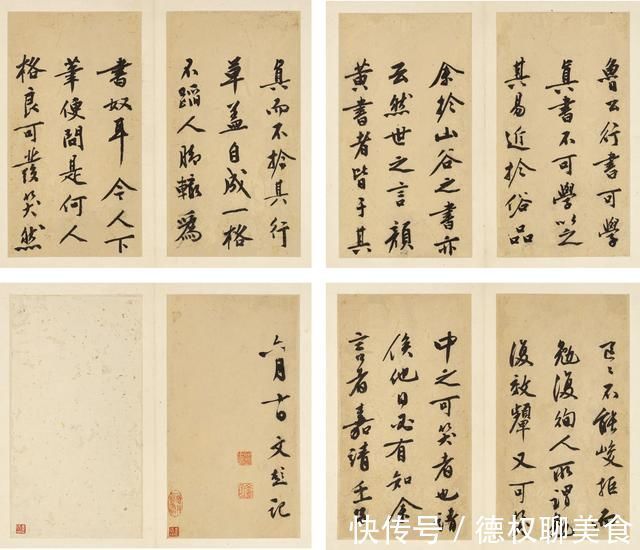 魯公行書可學
真書不可學以
其易近於俗品
余於山谷之書亦
云然世之言顏
黃書者皆于其
真而不於其行
草蓋自成一格
不蹈人腳轍為
書奴耳今人下
筆便問是何人
格良可發笑然
不能峻拒而
勉復徇人所謂
復效顰又可
中之可笑者也請
俟他日必有知余
言者嘉靖壬
六月十日文彭記
快传号 / 德权聊美食